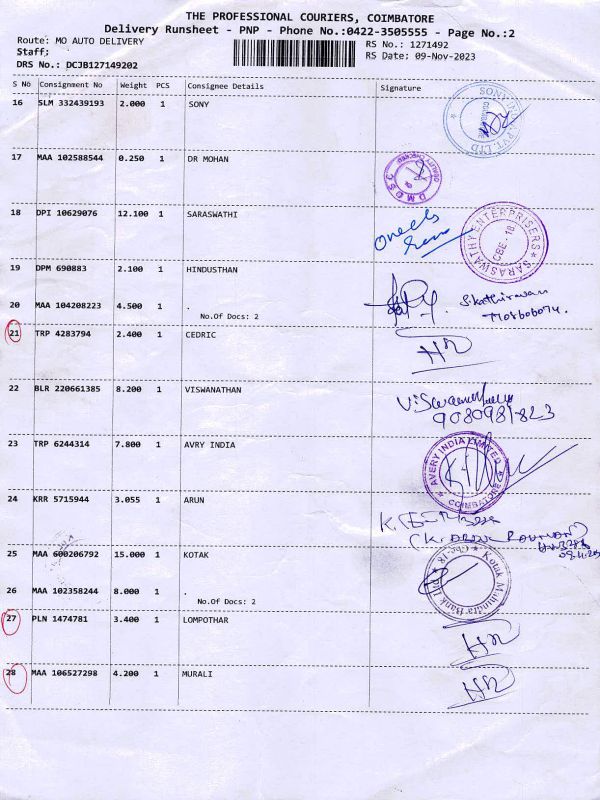 THE PROFESSIONAL COURIERS, COIMBATORE
Delivery Runsheet - PNP - Phone No.:0422-3505555 - Page No.:2
Route: MO AUTO DELIVERY
RS No.: 1271492
Staff;
RS Date: 09-Nov-2023
DRS No.: DCJB127149202
S No Consignment No Weight PCS Consignee Details Signature
16 SLM 332439193 2.000 1 SONY
17 MAA 102588544 0.250 1 DR MOHAN
DMDSC
18 DPI 10629076 12.100 1 SARASWATHI
SARASWATHY ENTERPRISERS
CBE - 18
19 DPM 690883 2.100 1 HINDUSTHAN
20 MAA 104208223 4.500 1 .
No.Of Docs: 2
21 TRP 4283794 2.400 1 CEDRIC
22 BLR 220661385 8.200 1 VISWANATHAN
9080981823
23 TRP 6244314 7.800 1 AVRY INDIA
AVERY INDIA LIMITED
COIMBATORE
24 KRR 5715944 3.055 1 ARUN
25 MAA 600206792 15.000 1 KOTAK
Kotak Mahindra Bank Ltd
Cbe-18
26 MAA 102358244 8.000 1 .
No.Of Docs: 2
27 PLN 1474781 3.400 1 LOMPOTHAR
28 MAA 106527298 4.200 1 MURALI